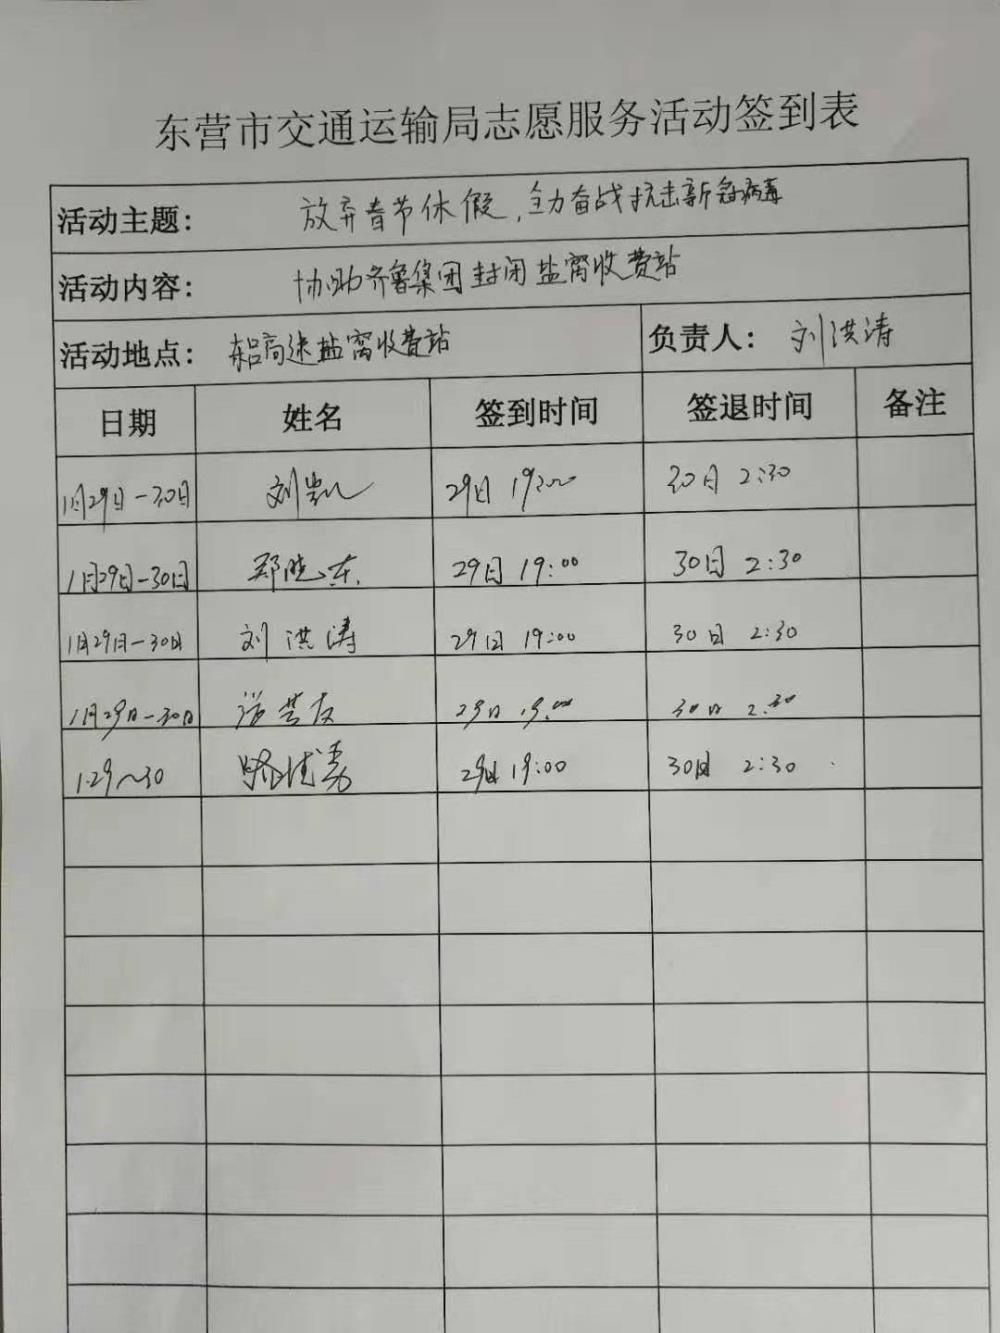 东营市交通运输局志愿服务活动签到表
活动主题： 放弃春节休假，全力奋战抗击新冠病毒
活动内容： 协助齐鲁集团封闭盐窝收费站
活动地点： 东吕高速盐窝收费站 负责人： 刘洪涛
日期 姓名 签到时间 签退时间 备注
1月29日-30日 刘凯 29日 19:00 30日 2:30
1月29日-30日 郑晓东 29日 19:00 30日 2:30
1月29日-30日 刘洪涛 29日 19:00 30日 2:30
1月29日-30日 29日 19:00 30日 2:30
1.29~30 29日 19:00 30日 2:30